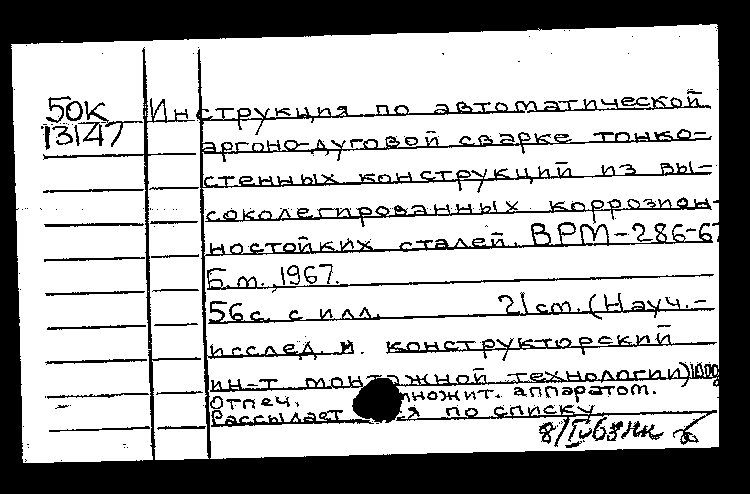 50К Инструкция по автоматической
13147 аргоно-дуговой сварке тонко-
стенных конструкций из вы-
соколегированных коррозион-
ностойких сталей. ВРМ-286-67
Б.т., 1967.
56с. с илл. 21 ст. (Науч.-
исслед. и. конструкторский
ин-т монтажной технологии)
Отпеч. множит. аппаратом.
Рассылает я по списку